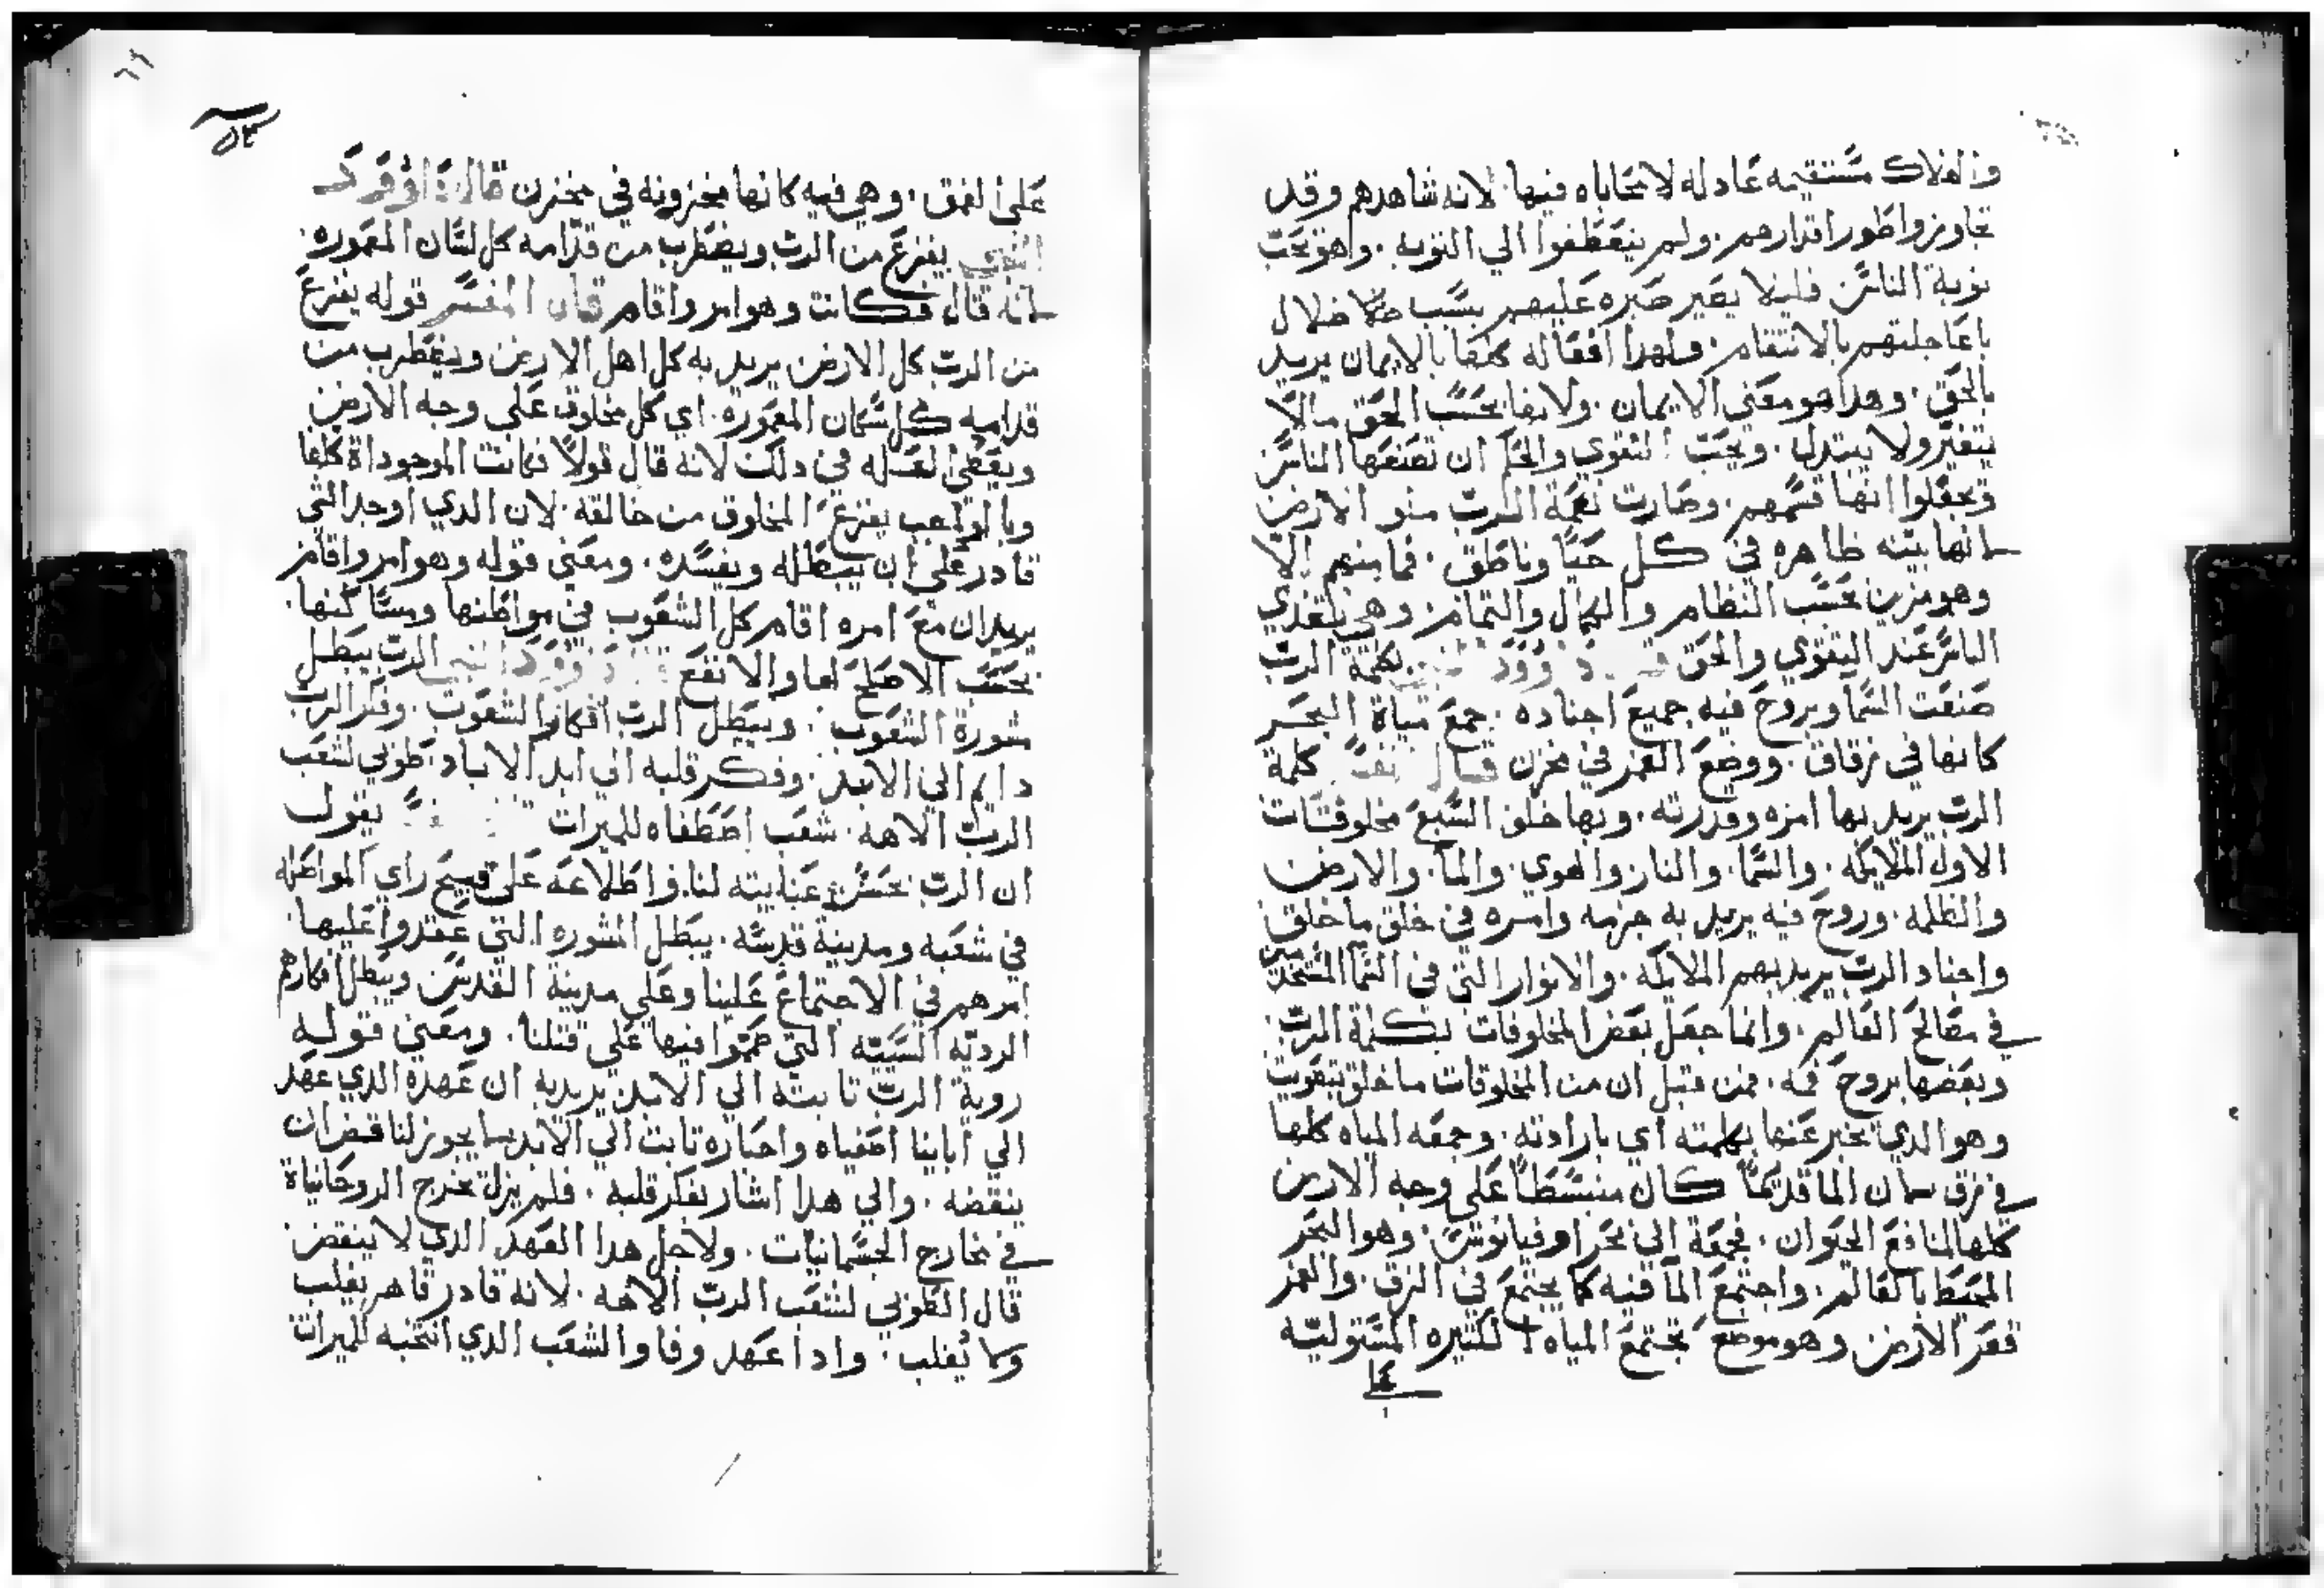 والهلاك مستقيمه عادله لا محاباه فيها. لانه شاهدهم وقد
تجاوزوا طور اقدارهم. ولم ينعطفوا الي التوبه. وهو يحب
توبة الناس فليلا يصير صبره عليهم بسبب ضلال
باعاجلتهم بالانتقام. ولهدا افعاله كلها بالايمان يريد
بالحق. وهدا هو معني الايمان. ولانها بحسب الحق مالا
يتغير ولا يبتدل. ويحب التقوي والحكم ان تصنعها الناس
ويجعلوا انها قسمهم. وصارت نعمة الرب ملو الارض
انها بينه ظاهره في كل حيا وناطق. فما منهم الا
وهو مزين بحسب النظام والكمال والتمام وهي تغدي
الناس عند التقوي والحق بكلمة الرب
صنعت السما وبروح فيه جميع اجناده. جمع مياة البحر
كانها في زقاق. ووضع الغمر في مخزن قال المفسر كلمة
الرب يريد بها امره وقدرته. وبها خلق السبع مخلوقات
الاول الملايكه. والسما. والنار والهوي. والما. والارض
والظلمه. وروح فيه يريد به جزمه وامره في خلق ما خلق
واجناد الرب يريد بهم الملايكه. والانوار التي في السما
في مصالح العالم. وانما جعل بعض المخلوقات بكلمة الرب
وبعضها بروح فيه. فمن قبل ان من المخلوقات ما خلق بتقويت
وهو الدي يخبر عنها بكلمته اي بارادته. وجمعه المياه كلها
في زق سان الما قديما كان منبسطا علي وجه الارض
كلها لمنافع الحيوان. فجمعه الي بحر اوقيانوس. وهو البحر
المحيط بالعالم. واجتمع الما فيه كما يجتمع في الزق. والغمر
قعر الارض وهو موضع تجتمع المياه الكثيره المستوليه
علي العمق. وهي فيه كانها مخزونه في مخزن قال داوود
النبي يفزع من الرب ويضطرب من قدامه كل سكان المعموره.
لانه قال فكانت وهو امر واقام قال المفسر قوله يفزع
من الرب كل الارض يريد به كل اهل الارض ويضطرب من
قدامه كل سكان المعموره. اي كل مخلوق علي وجه الارض
ويعطي العله في دلك لانه قال قولا فكانت الموجوداة كلها
وبالواجب يفزع المخلوق من خالقه. لان الدي اوجد الشي
قادر علي ان يبطله ويفسده. ومعني قوله وهو امر واقام
يريد ان مع امره اقام كل الشعوب في مواطنها ومساكنها.
بحسب الاصلح لها والانفع قال داوود النبي الرب يبطل
مشورة الشعوب. ويبطل الرب افكار الشعوب. وفكر الرب
دايم الي الابد. وفكر قلبه الي ابد الاباد. طوبي لشعب
الرب الاهه. شعب اصطفاه للميرات يقول
ان الرب بحسن عنايته لنا. واطلاعه علي قبيح راي المواطئه
في شعبه ومدينة قدسه. يبطل المشوره التي عقدوا عليها.
امرهم في الاجتماع علينا وعلي مدينة القدس ويبطل افكارهم
الرديه السييه التي همّوا فيها علي قتلنا. ومعني قوله
روية الرب تابته الي الابد يريد به ان عهده الدي عهد
الي ابايينا اصفياه واخياره تابت الي الابد يجوز لنا
ينقضه. والي هدا اشار بفكر قلبه. فلم يزل تخرج الروحانياة
في مخارج الجسمانيات. ولاجل هدا العهد الدي لا ينقض
قال الطوبي لشعب الرب الاهه. لانه قادر قاهر يغلب
ولا يُغلب. وادا عهد وفا والشعب الدي انتخبه للميرات